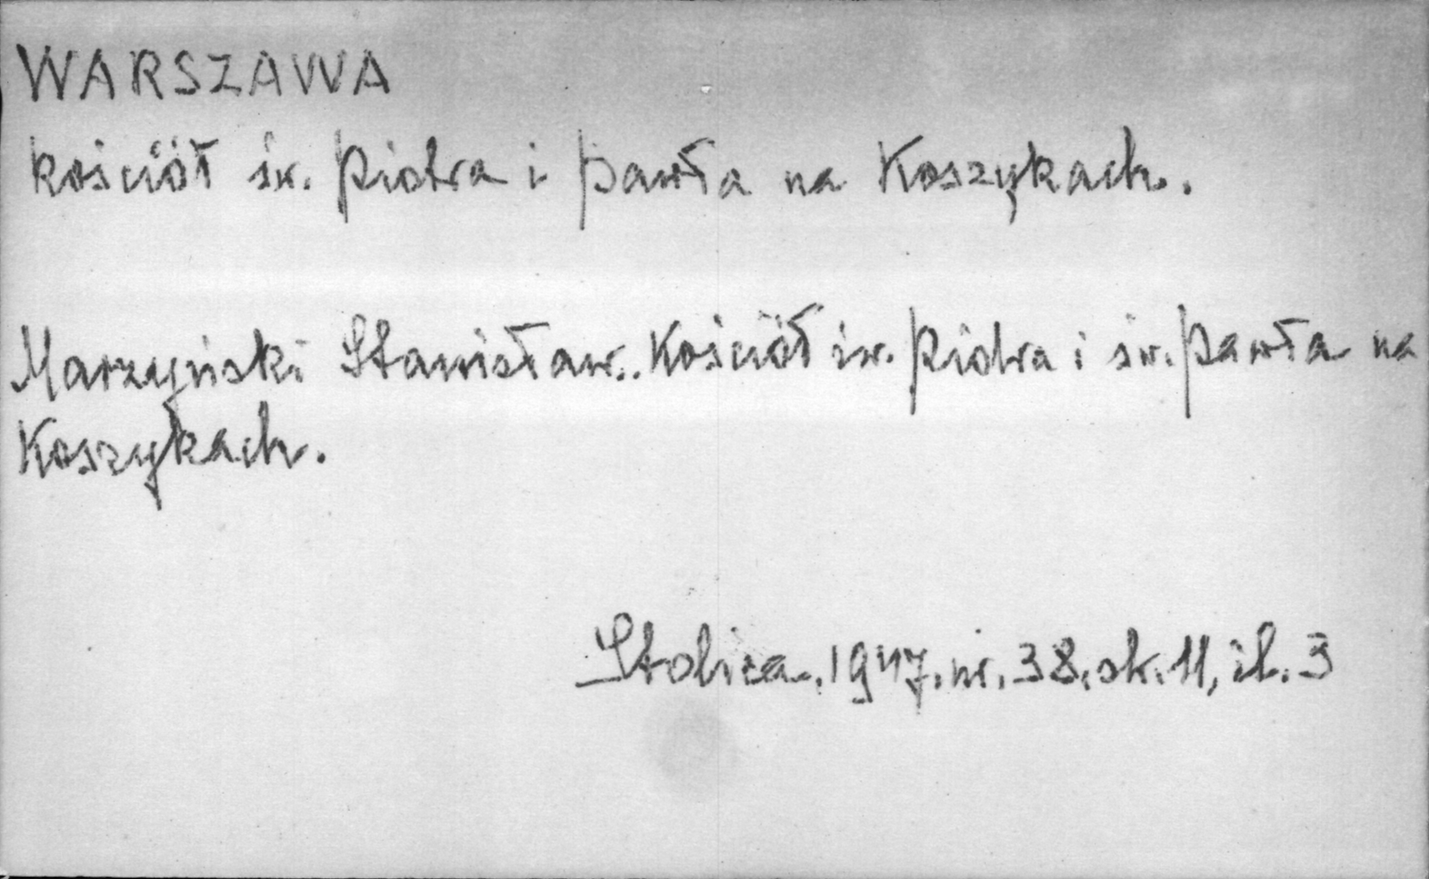 WARSZAWA
kościół św. Piotra i Pawła na Koszykach.
Marzyński Stanisław. Kościół św. Piotra i św. Pawła na
Koszykach.
Stolica. 1947. nr. 38. sk. 11, il. 3